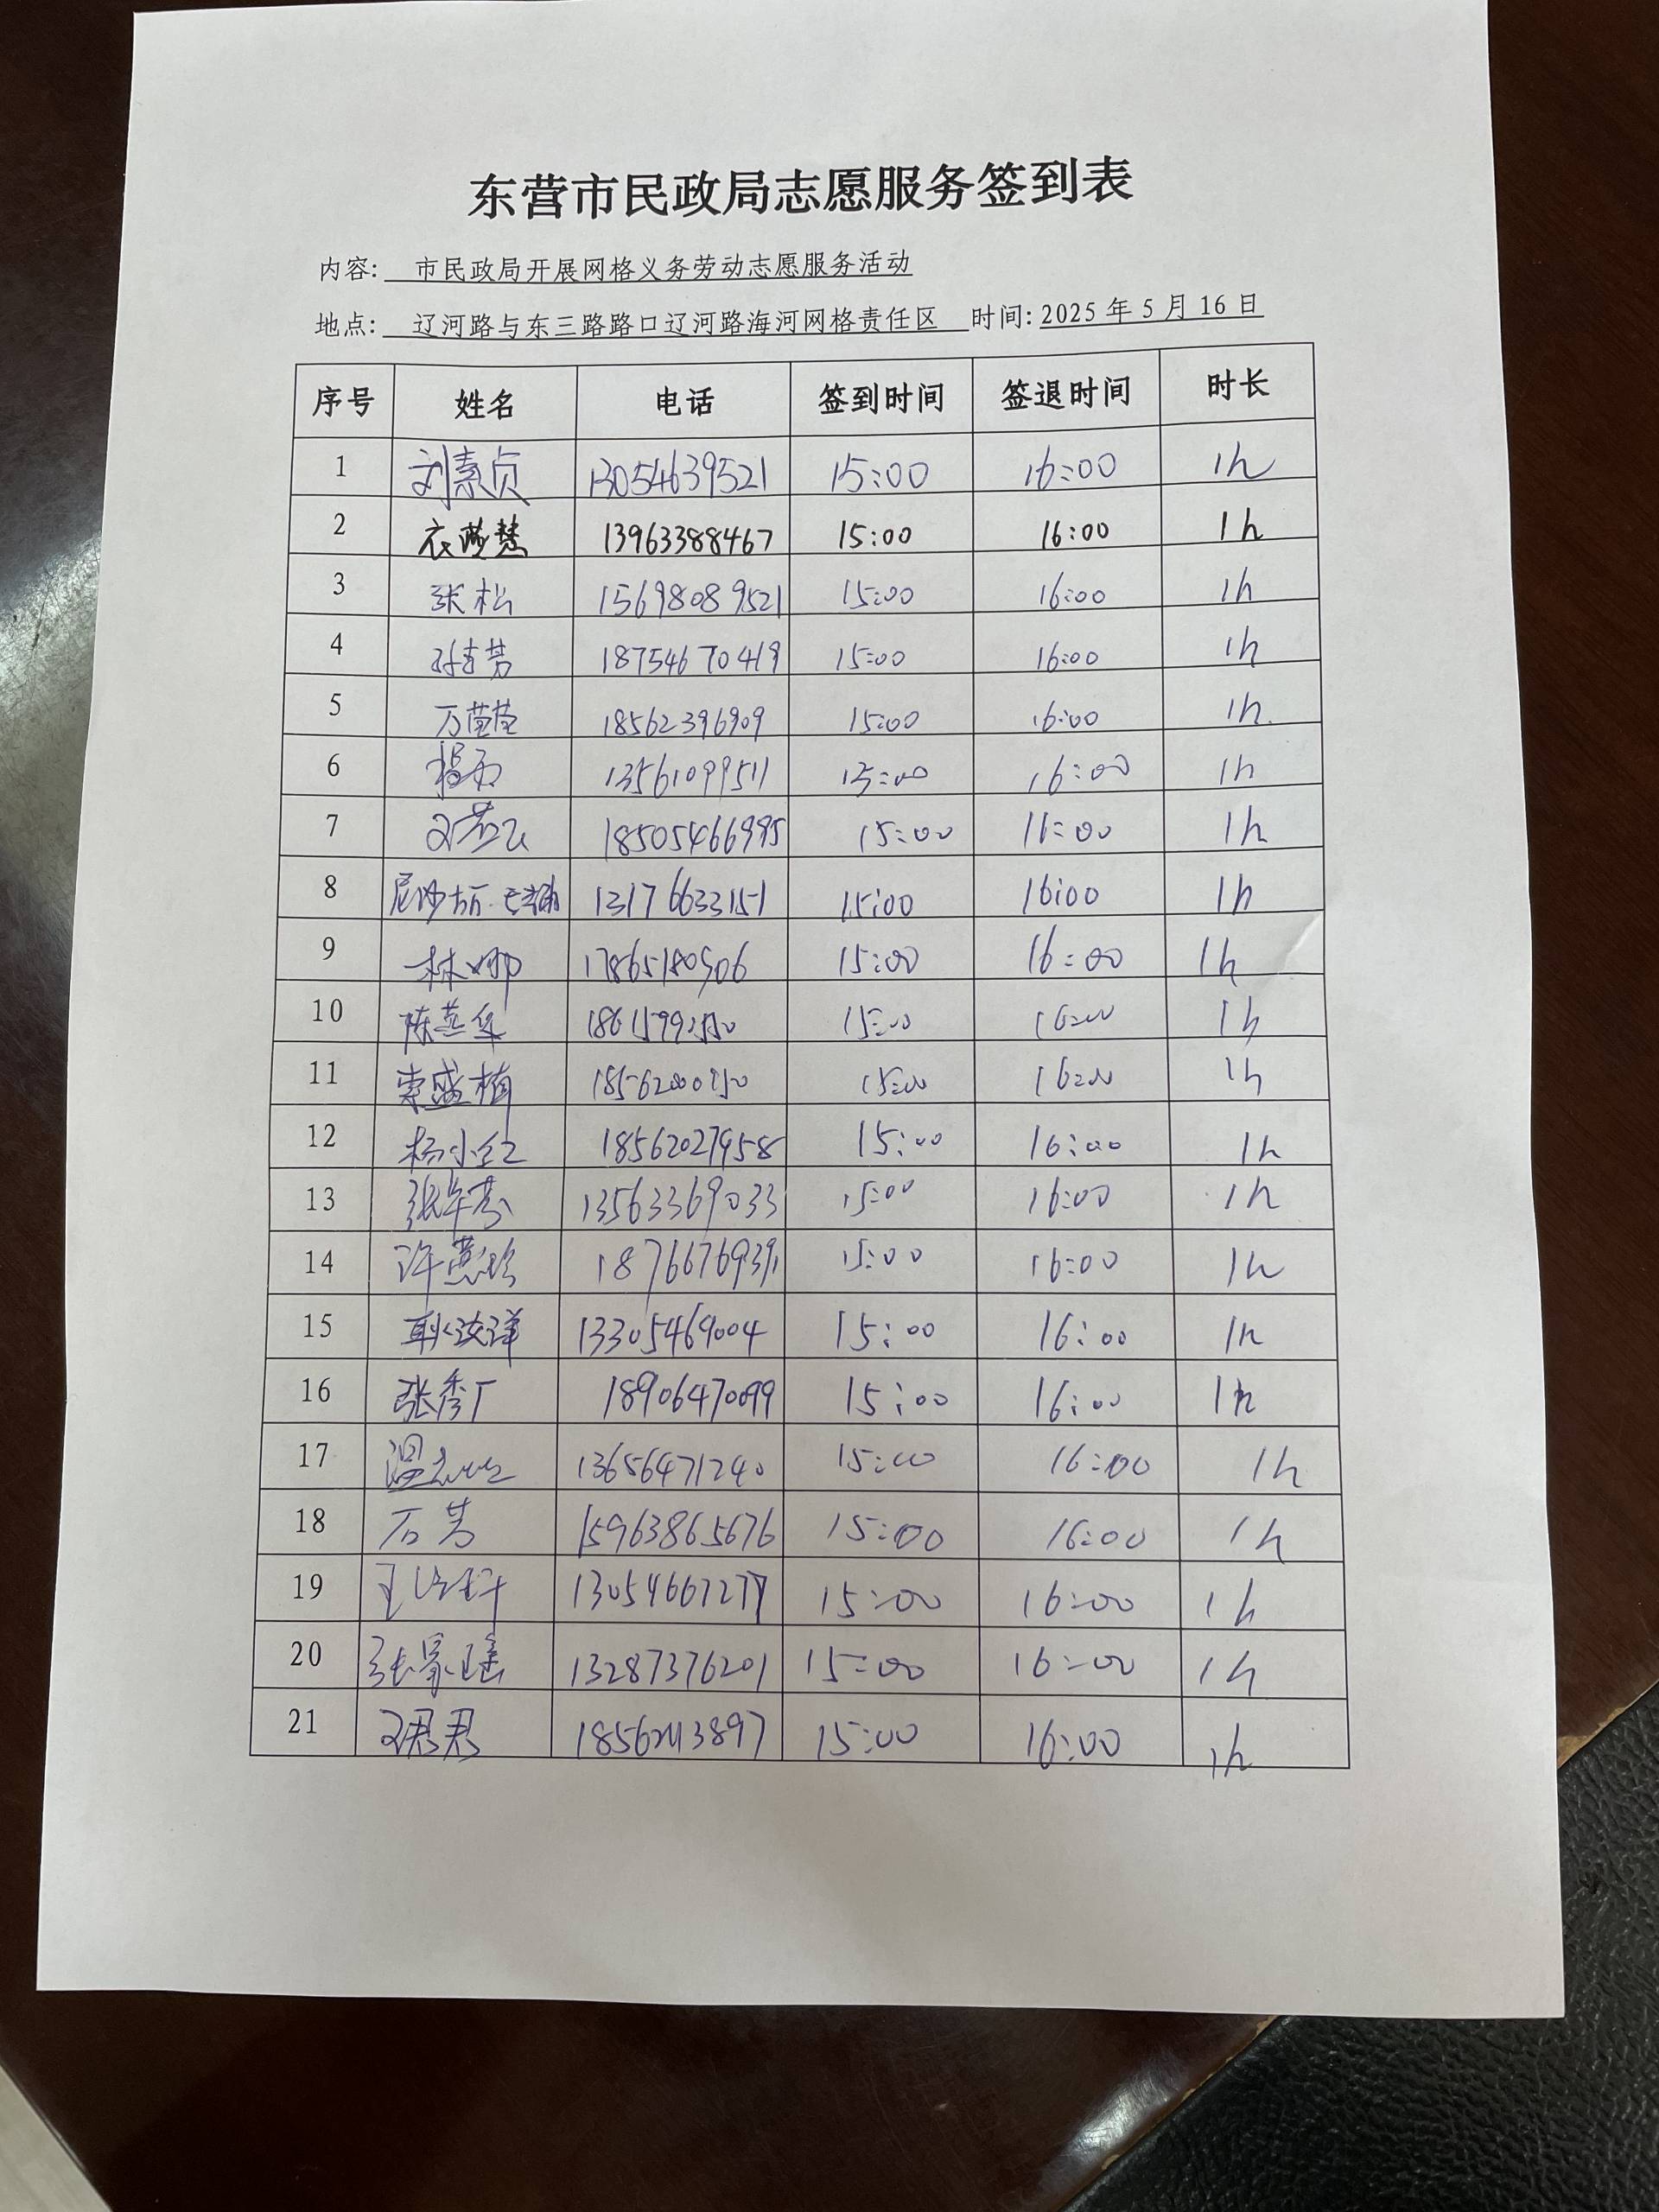 东营市民政局志愿服务签到表
内容: 市民政局开展网格义务劳动志愿服务活动
地点: 辽河路与东三路路口辽河路海河网格责任区 时间: 2025年5月16日
序号 姓名 电话 签到时间 签退时间 时长
1 刘素贞 13054639521 15:00 16:00 1h
2 衣燕慧 13963388467 15:00 16:00 1h
3 张松 15698089521 15:00 16:00 1h
4 18754670419 15:00 16:00 1h
5 万莹莹 18562396909 15:00 16:00 1h
6 13561099511 15:00 16:00 1h
7 18505466995 15:00 16:00 1h
8 13176633151 15:00 16:00 1h
9 林娜 17865180506 15:00 16:00 1h
10 陈燕华 15:00 16:00 1h
11 15:00 16:00 1h
12 杨小红 18562027958 15:00 16:00 1h
13 13563369033 15:00 16:00 1h
14 15:00 16:00 1h
15 耿汝洋 13305469004 15:00 16:00 1h
16 张秀广 18906470099 15:00 16:00 1h
17 13656471240 15:00 16:00 1h
18 石芳 15963865676 15:00 16:00 1h
19 15:00 16:00 1h
20 张家瑶 13287376201 15:00 16:00 1h
21 15:00 16:00 1h